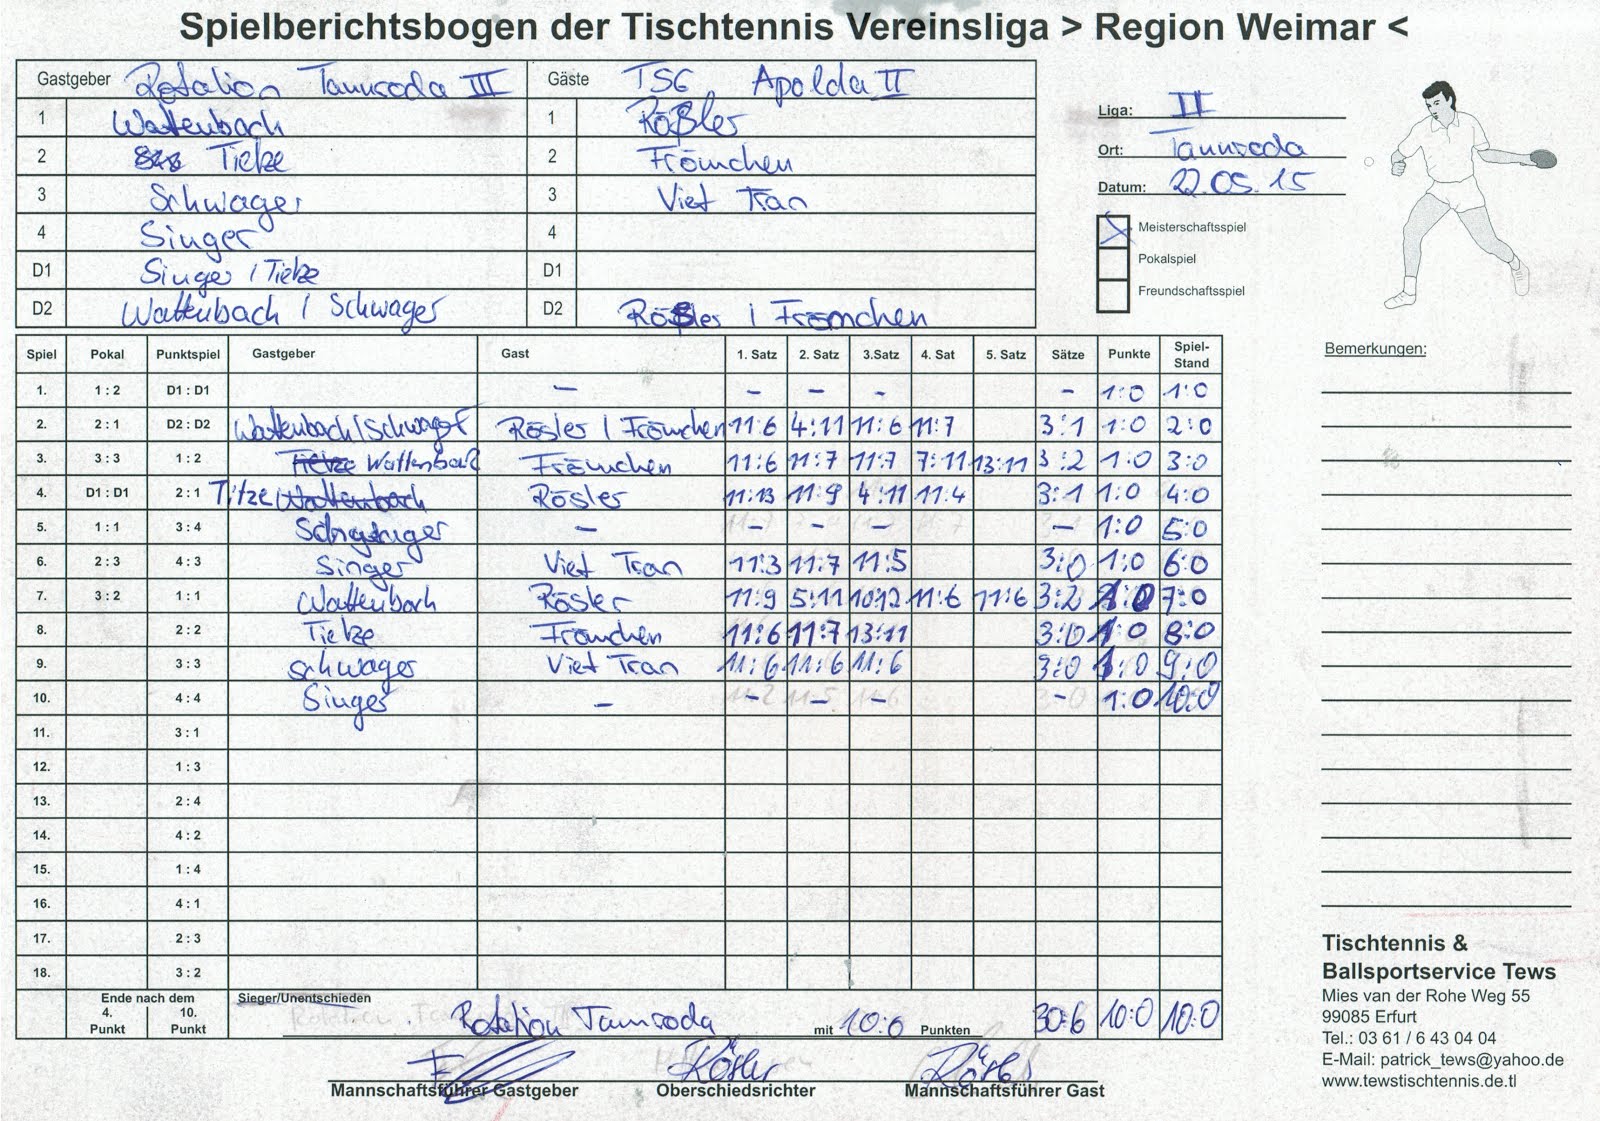 Spielberichtsbogen der Tischtennis Vereinsliga > Region Weimar <
Gastgeber Rotation Tannroda III Gäste TSG Apolda II
1 Wattenbach 1 Rößler
2 Tietze 2 Frömchen
3 Schwager 3 Viet Tran
4 Singer 4
D1 Singer / Tietze D1
D2 Wattenbach / Schwager D2 Rößler / Frömchen
Liga: II
Ort: Tannroda
Datum: 22.05.15
Meisterschaftsspiel
Pokalspiel
Freundschaftsspiel
Bemerkungen:
Spiel Pokal Punktspiel Gastgeber Gast 1. Satz 2. Satz 3.Satz 4. Sat 5. Satz Sätze Punkte Spiel-Stand
1. 1 : 2 D1 : D1 – – – – – 1:0 1:0
2. 2 : 1 D2 : D2 Wattenbach/Schwager Rösler / Frömchen 11:6 4:11 11:6 11:7 3:1 1:0 2:0
3. 3 : 3 1 : 2 Tietze Wattenbach Frömchen 11:6 11:7 11:7 7:11 13:11 3:2 1:0 3:0
4. D1 : D1 2 : 1 Titze Wattenbach Rösler 11:13 11:9 4:11 11:4 3:1 1:0 4:0
5. 1 : 1 3 : 4 Schwager – – – – – 1:0 5:0
6. 2 : 3 4 : 3 Singer Viet Tran 11:3 11:7 11:5 3:0 1:0 6:0
7. 3 : 2 1 : 1 Wattenbach Rösler 11:9 5:11 10:12 11:6 11:6 3:2 1:0 7:0
8. 2 : 2 Tietze Frömchen 11:6 11:7 13:11 3:0 1:0 8:0
9. 3 : 3 Schwager Viet Tran 11:6 11:6 11:6 3:0 1:0 9:0
10. 4 : 4 Singer – – – – – 1:0 10:0
11. 3 : 1
12. 1 : 3
13. 2 : 4
14. 4 : 2
15. 1 : 4
16. 4 : 1
17. 2 : 3
18. 3 : 2
Ende nach dem
4. Punkt 10. Punkt
Sieger/Unentschieden
Rotation Tannroda mit 10:0 Punkten 30:6 10:0 10:0
Rösler
Mannschaftsführer Gastgeber Oberschiedsrichter Mannschaftsführer Gast
Tischtennis &
Ballsportservice Tews
Mies van der Rohe Weg 55
99085 Erfurt
Tel.: 03 61 / 6 43 04 04
E-Mail: patrick_tews@yahoo.de
www.tewstischtennis.de.tl